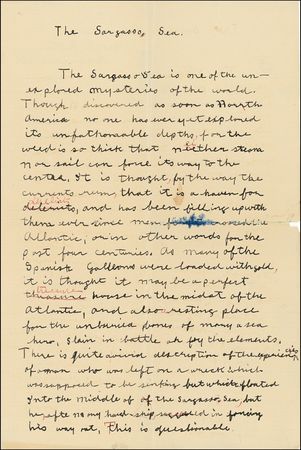 The Sargasso Sea.
The Sargasso Sea is one of the un-
explored mysteries of the world.
Though discovered as soon as North
America no one has ever yet explored
its unfathomable depths, for the
weed is so thick that neither steam
nor sail can force its way to the
center. It is thought, by the way the
currents run, that it is a haven for
derelicts, and has been filling up with
them ever since men first crossed the
Atlantic, or in other words for the
past four centuries. As many of the
Spanish Galleons were loaded with gold,
it is thought it may be a perfect
treasure house in the midst of the
Atlantic, and also a resting place
for the unburied bones of many a sea
hero, slain in battle or by the elements.
There is quite a vivid description of the experiences
of a man who was left on a wreck which
was supposed to be sinking but which floated
into the middle of of the Sargasso Sea, but
he, after no
way out, This is questionable.